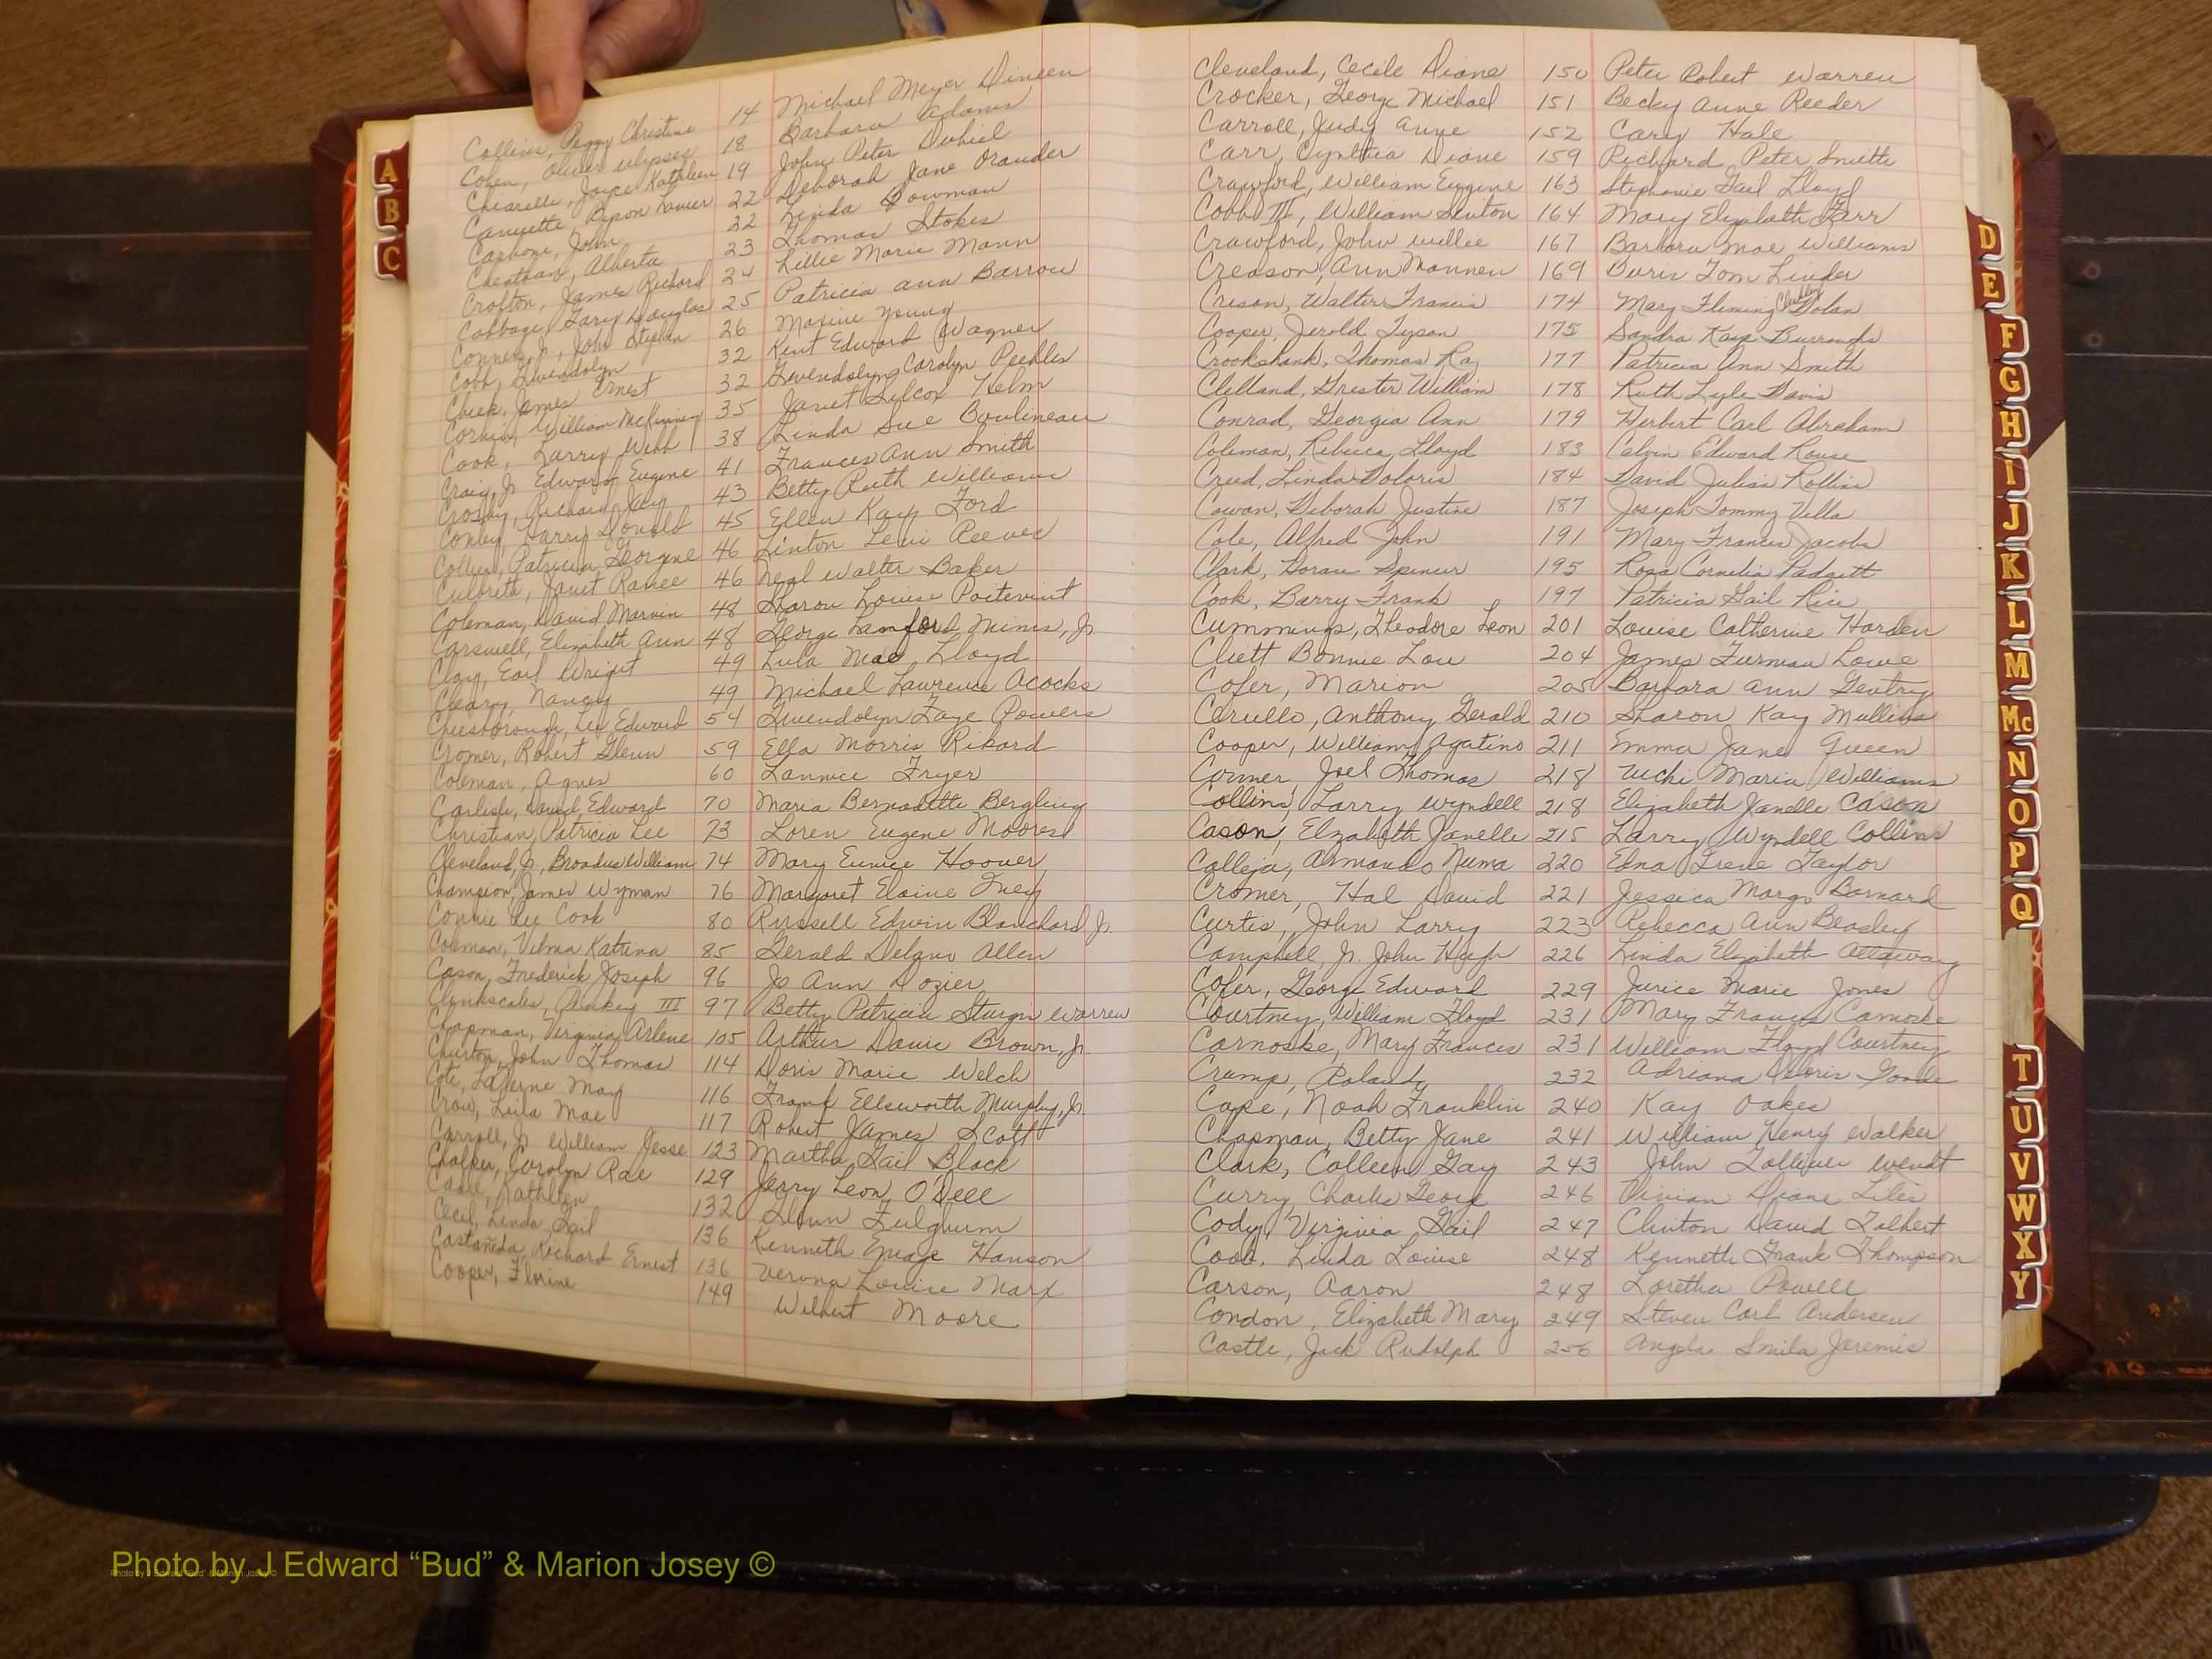 Collins, Peggy Christine 14 Michael Meyer Dineen
Cohen, Oliver Ulysses 18 Barbara Adams
Chiarelli, Joyce Kathleen 19 John Peter Duhiel
Canuette, Byron Lanier 22 Deborah Jane Orander
Carbone, John 22 Linda Bowman
Cheatham, Alberta 23 Thomas Stokes
Crofton, James Richard 24 Lillie Marie Mann
Cabbage, Gary Douglas 25 Patricia Ann Barrow
Conner, Jr., John Stephen 26 Maxine Young
Cobb, Gwendolyn 32 Kent Edward Wagner
Cheek, James Ernest 32 Gwendolyn Carolyn Peebles
William McKinney 35 Janet Silcox Helm
Cook, Larry Webb 38 Linda Sue Boulineau
Craig, Jr. Edward Eugene 41 Frances Ann Smith
Crosby, Richard Jay 43 Betty Ruth Williams
Conley, Harry Donald 45 Ellen Kay Ford
Collier, Patricia Georgene 46 Linton Levi Reeves
Culbreth, Janet Ranee 46 Neal Walter Baker
Coleman, David Marvin 48 Sharon Louise Poitevint
Carswell, Elizabeth Ann 48 George Lanford Mims, Jr.
Clay, Earl Wright 49 Lula Mae Lloyd
Cleary, Nancy 49 Michael Lawrence Acocks
Cheesborough, Lee Edward 54 Gwendolyn Faye Powers
Cromer, Robert Glenn 59 Ella Morris Rikard
Coleman, Agnes 60 Lannice Fryer
Carlisle, David Edward 70 Maria Bernadette Bergling
Christian, Patricia Lee 73 Loren Eugene Moores
Cleveland, Jr., Broadus William 74 Mary Eunice Hoover
Champion, James Wyman 76 Margaret Elaine Ivey
Connie Lee Cook 80 Russell Edwin Blanchard Jr.
Coleman, Velma Katrina 85 Gerald Delano Allen
Cason, Frederick Joseph 96 Jo Ann Dozier
Clinkscales, Pinkey III 97 Betty Patricia Sturgn Warren
Chapman, Virginia Arlene 105 Arthur Davie Brown, Jr.
Churton, John Thomas 114 Doris Marie Welch
Cote, LaVerne May 116 Frank Ellsworth Murphy, Jr.
Crow, Leila Mae 117 Robert James Scott
Carroll, Jr. William Jesse 123 Martha Gail Black
Chalker, Carolyn Rae 129 Jerry Leon O'Dell
Kathleen 132 Glenn Fulghum
Cecil, Linda Gail 136 Kenneth Emage Hanson
Castañeda, Richard Ernest 136 Verona Louise Marx
Cooper, Florine 149 Wilbert Moore
Cleveland, Cecile Diane 150 Peter Robert Warren
Crocker, George Michael 151 Becky Anne Reeder
Carroll, Judy Anne 152 Cary Hale
Carr, Cynthia Diane 159 Richard Peter Smith
Crawford, William Eugene 163 Stephanie Gail Lloyd
Cobb III, William Senton 164 Mary Elizabeth Farr
Crawford, John Willie 167 Barbara Mae Williams
Creason, Ann Mannen 169 Buris Tom Linder
Crison, Walter Francis 174 Mary Fleming Chubby Dolan
Cooper, Jerold Tyson 175 Sandra Kaye Burroughs
Crookshank, Thomas Ray 177 Patricia Ann Smith
Clelland, Grester William 178 Ruth Lyle Davis
Conrad, Georgia Ann 179 Herbert Carl Abraham
Coleman, Rebecca Lloyd 183 Calvin Edward Rouse
Creed, Linda Doloris 184 David Julian Rollins
Cowan, Deborah Justine 187 Joseph Tommy Villa
Cole, Alfred John 191 Mary Frances Jacobs
Clark, Doran Spencer 195 Rosa Cornelia Padgett
Cook, Barry Frank 197 Patricia Gail Rice
Cummings, Theodore Leon 201 Louise Catherine Harden
Cliett Bonnie Lou 204 James Furman Lowe
Cofer, Marion 205 Barbara Ann Gentry
Cerullo, Anthony Gerald 210 Sharon Kay Mullins
Cooper, William Agatino 211 Emma Jane Queen
Conner, Joel Thomas 218 Vicki Maria Williams
Collins, Larry Wyndell 218 Elizabeth Janelle Cason
Cason, Elzabeth Janelle 215 Larry Wyndell Collins
Calleja, Armando Numa 220 Edna Irene Taylor
Cromer, Hal David 221 Jessica Margo Barnard
Curtis, John Larry 223 Rebecca Ann Beasley
Campbell, Jr. John Hugh 226 Linda Elizabeth Attaway
Cofer, George Edward 229 Junice Marie Jones
Courtney, William Floyd 231 Mary Frances Carnoske
Carnoske, Mary Frances 231 William Floyd Courtney
Crump, Roland 232 Adriana Doris Goode
Cape, Noah Franklin 240 Kay Oakes
Chapman, Betty Jane 241 William Henry Walker
Clark, Colleen Gay 243 John Tolliver Wendt
Curry, Charles George 246 Vivian Diane Liles
Cody, Virginia Gail 247 Clinton David Talbert
Linda Louise 248 Kenneth Frank Thompson
Carson, Aaron 248 Loretha Powell
Condon, Elizabeth Mary 249 Steven Carl Andersen
Castle, Jack Rudolph 256 Angela Smila Jeremis
A
B
C
D
E
F
G
H
I
J
K
L
M
Mc
N
O
P
Q
T
U
V
W
X
Y
Photo by J Edward “Bud” & Marion Josey ©
Photo by J Edward “Bud” & Marion Josey ©